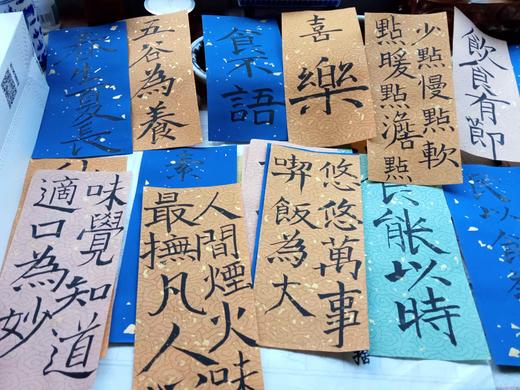 生夏長
五谷為養
食不語
喜樂
少點慢點軟
點暖點澹點
飲食有節
味覺知道
適口為妙
素
人間煙火味
最撫凡人
悠悠萬事
喫飯為大
食能以時
民以食